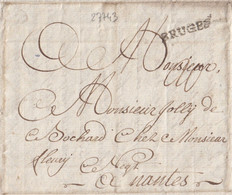 87743
BRUGES
A Monsieur
Monsieur Jolly de
Bochard Chez Monsieur
fleury Negt
A Nantes